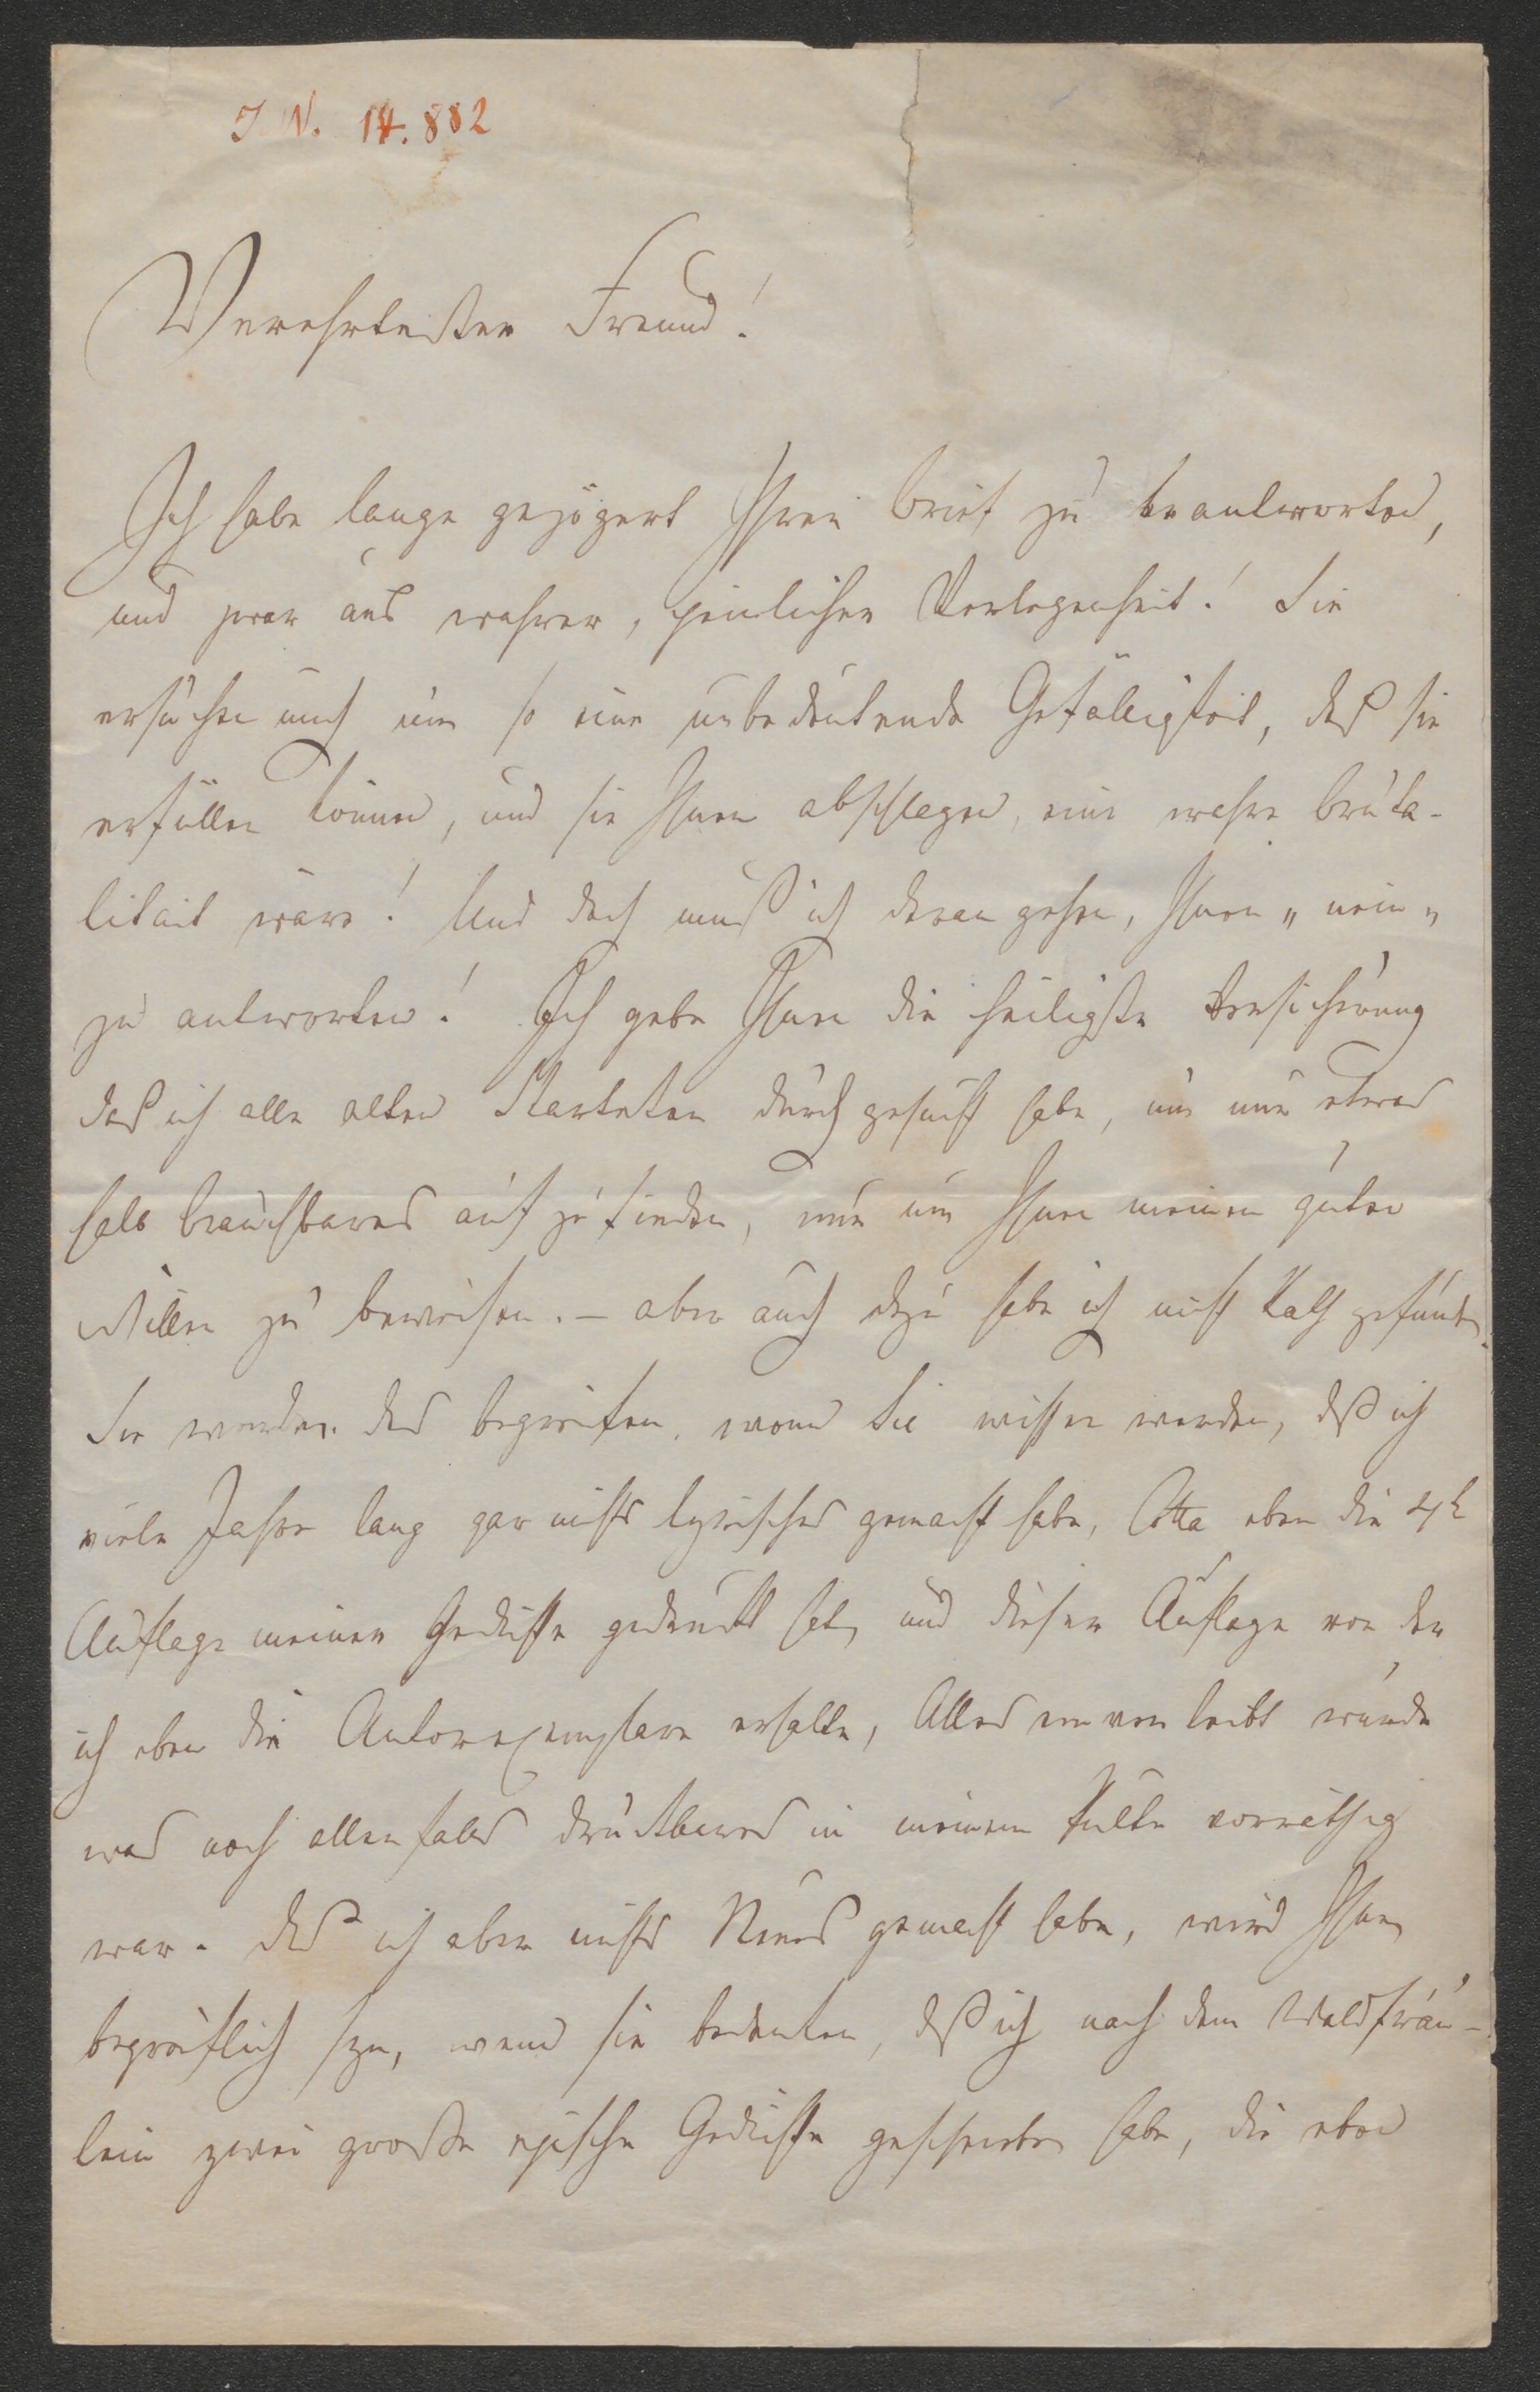 I. N. 14.882
Verehrtester Freund!
Ich habe lange gezögert Ihren Brief zu beantworten,
und zwar aus wahrer, peinlicher Verlegenheit! Sie
ersuchen mich um so eine unbedeutende Gefälligkeit, daß sie
erfüllen können, und sie Ihnen abschlagen, eine wahre Bruta-
litait wäre! Und doch muß ich daran gehen, Ihnen „nein„
zu antworten! Ich gebe Ihnen die heiligste Versicherung
daß ich alle alten Skarteken durch gesucht habe, um nur etwas
halb brauchbares auf zu finden, nur um Ihnen meinen guten
Willen zu beweisen. – aber auch dazu habe ich nicht Rath gefunden.
Sie werden das begreifen, wenn Sie wissen werden, daß ich
viele Jahre lang gar nichts lyrisches gemacht habe, Cotta eben die 4t
Auflage meiner Gedichte gedruckt hat, und dieser Auflage von der
ich eben die Autorexemplare erhalte, Alles einverleibt wurde
was noch allenfalls druckbares in meinem Pulte vorräthig
war. Daß ich aber nichts Neues gemacht habe, wird Ihnen
begreiflich seyn, wenn sie bedenken, daß ich nach dem Waldfräu-
lein zwei große epische Gedichte geschrieben habe, die eben